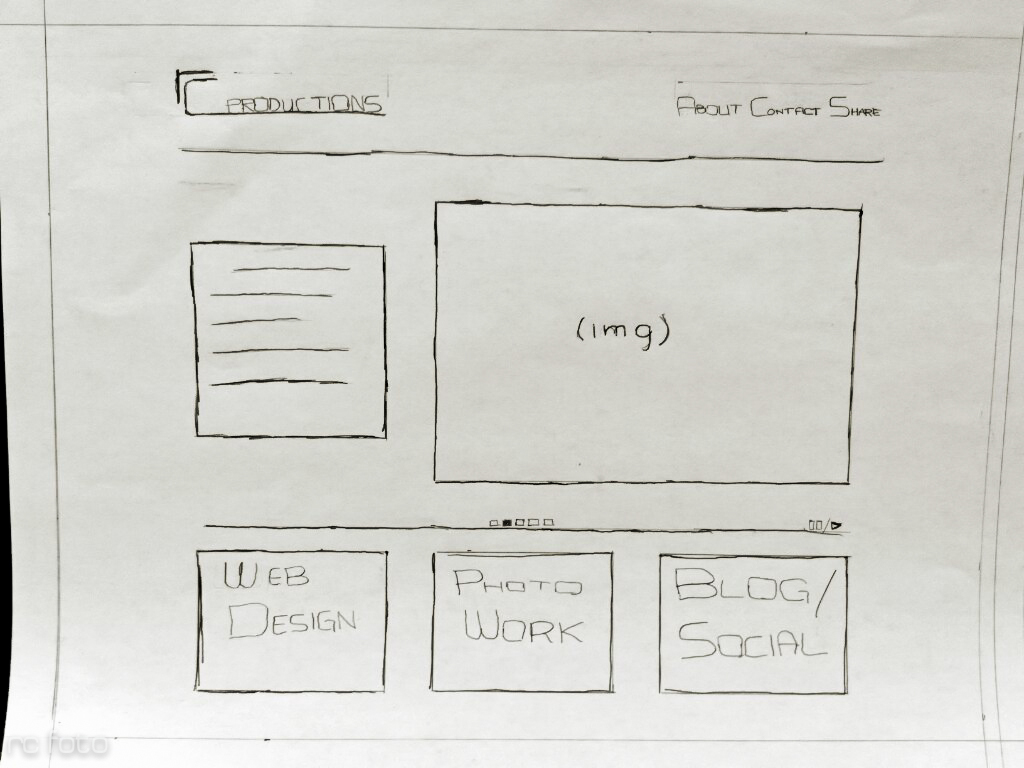 rC PRODUCTIONS
ABOUT CONTACT SHARE
(img)
WEB
DESIGN
PHOTO
WORK
BLOG/
SOCIAL
rc foto